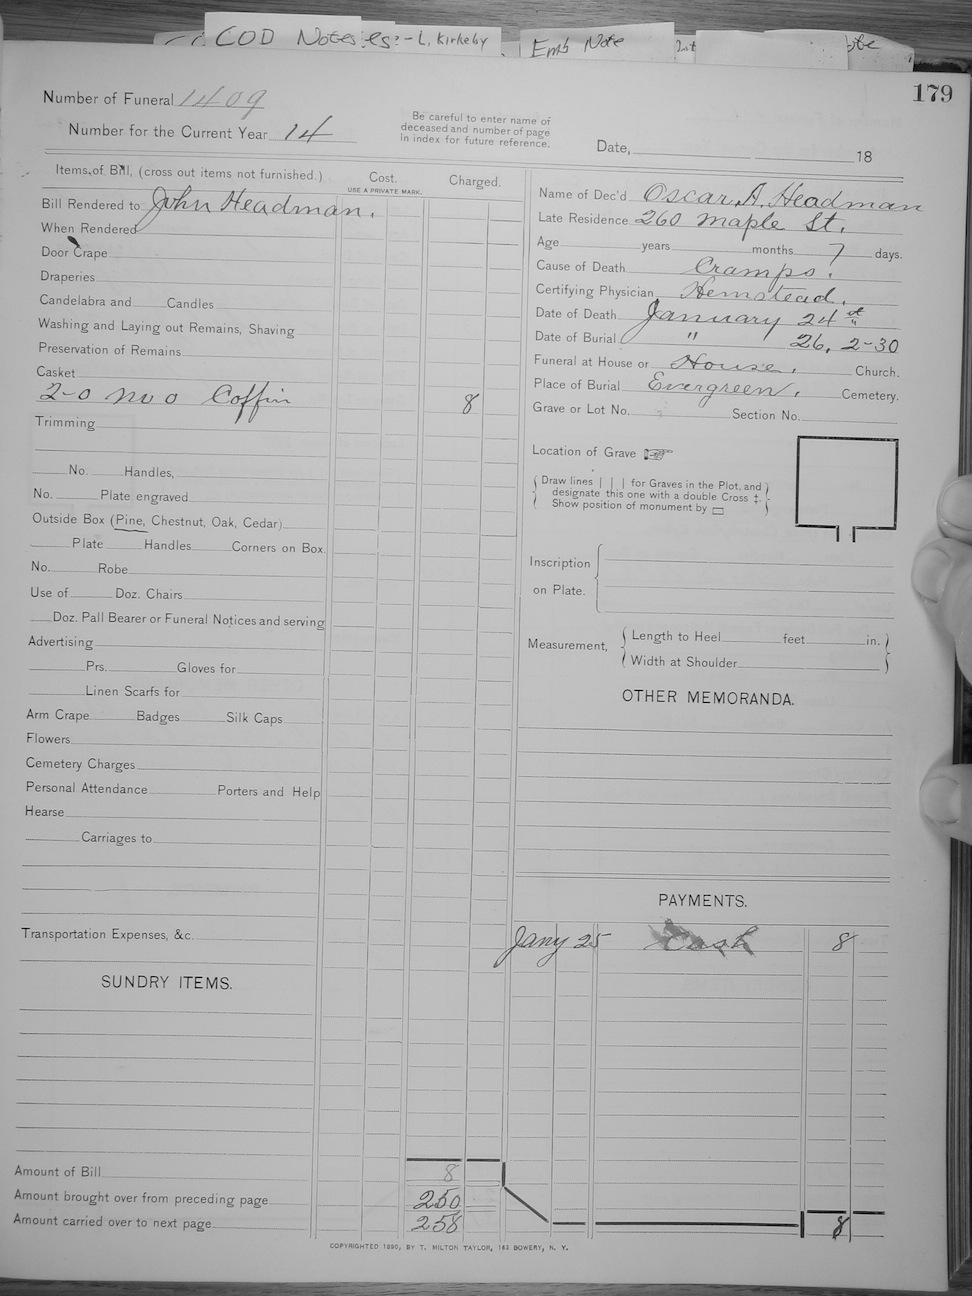 COD Notes es:- L. Kirkeby
Emb Note
179
Number of Funeral 1409
Number for the Current Year 14
Be careful to enter name of
deceased and number of page
in index for future reference.
Date, 18
Items of Bill, (cross out items not furnished.)
Cost.
USE A PRIVATE MARK.
Charged.
Bill Rendered to John Headman.
When Rendered
Door Crape
Draperies
Candelabra and Candles
Washing and Laying out Remains, Shaving
Preservation of Remains
Casket
2-0 No 0 Coffin 8
Trimming
No. Handles,
No. Plate engraved
Outside Box (Pine, Chestnut, Oak, Cedar)
Plate Handles Corners on Box.
No. Robe
Use of Doz. Chairs
Doz. Pall Bearer or Funeral Notices and serving
Advertising
Prs. Gloves for
Linen Scarfs for
Arm Crape Badges Silk Caps
Flowers
Cemetery Charges
Personal Attendance Porters and Help
Hearse
Carriages to
Transportation Expenses, &c.
SUNDRY ITEMS.
Amount of Bill 8
Amount brought over from preceding page 250
Amount carried over to next page 258
Name of Dec'd Oscar A. Headman
Late Residence 260 Maple St.
Age years months 7 days.
Cause of Death Cramps.
Certifying Physician Hemstead.
Date of Death January 24
Date of Burial " 26, 2-30
Funeral at House or House. Church.
Place of Burial Evergreen. Cemetery.
Grave or Lot No. Section No.
Location of Grave ☞
Draw lines | | | for Graves in the Plot, and
designate this one with a double Cross ‡.
Show position of monument by ▭
Inscription
on Plate.
Measurement, Length to Heel feet in.
Width at Shoulder
OTHER MEMORANDA.
PAYMENTS.
Jany 25 Cash 8
8
COPYRIGHTED 1890, BY T. MILTON TAYLOR, 163 BOWERY, N. Y.